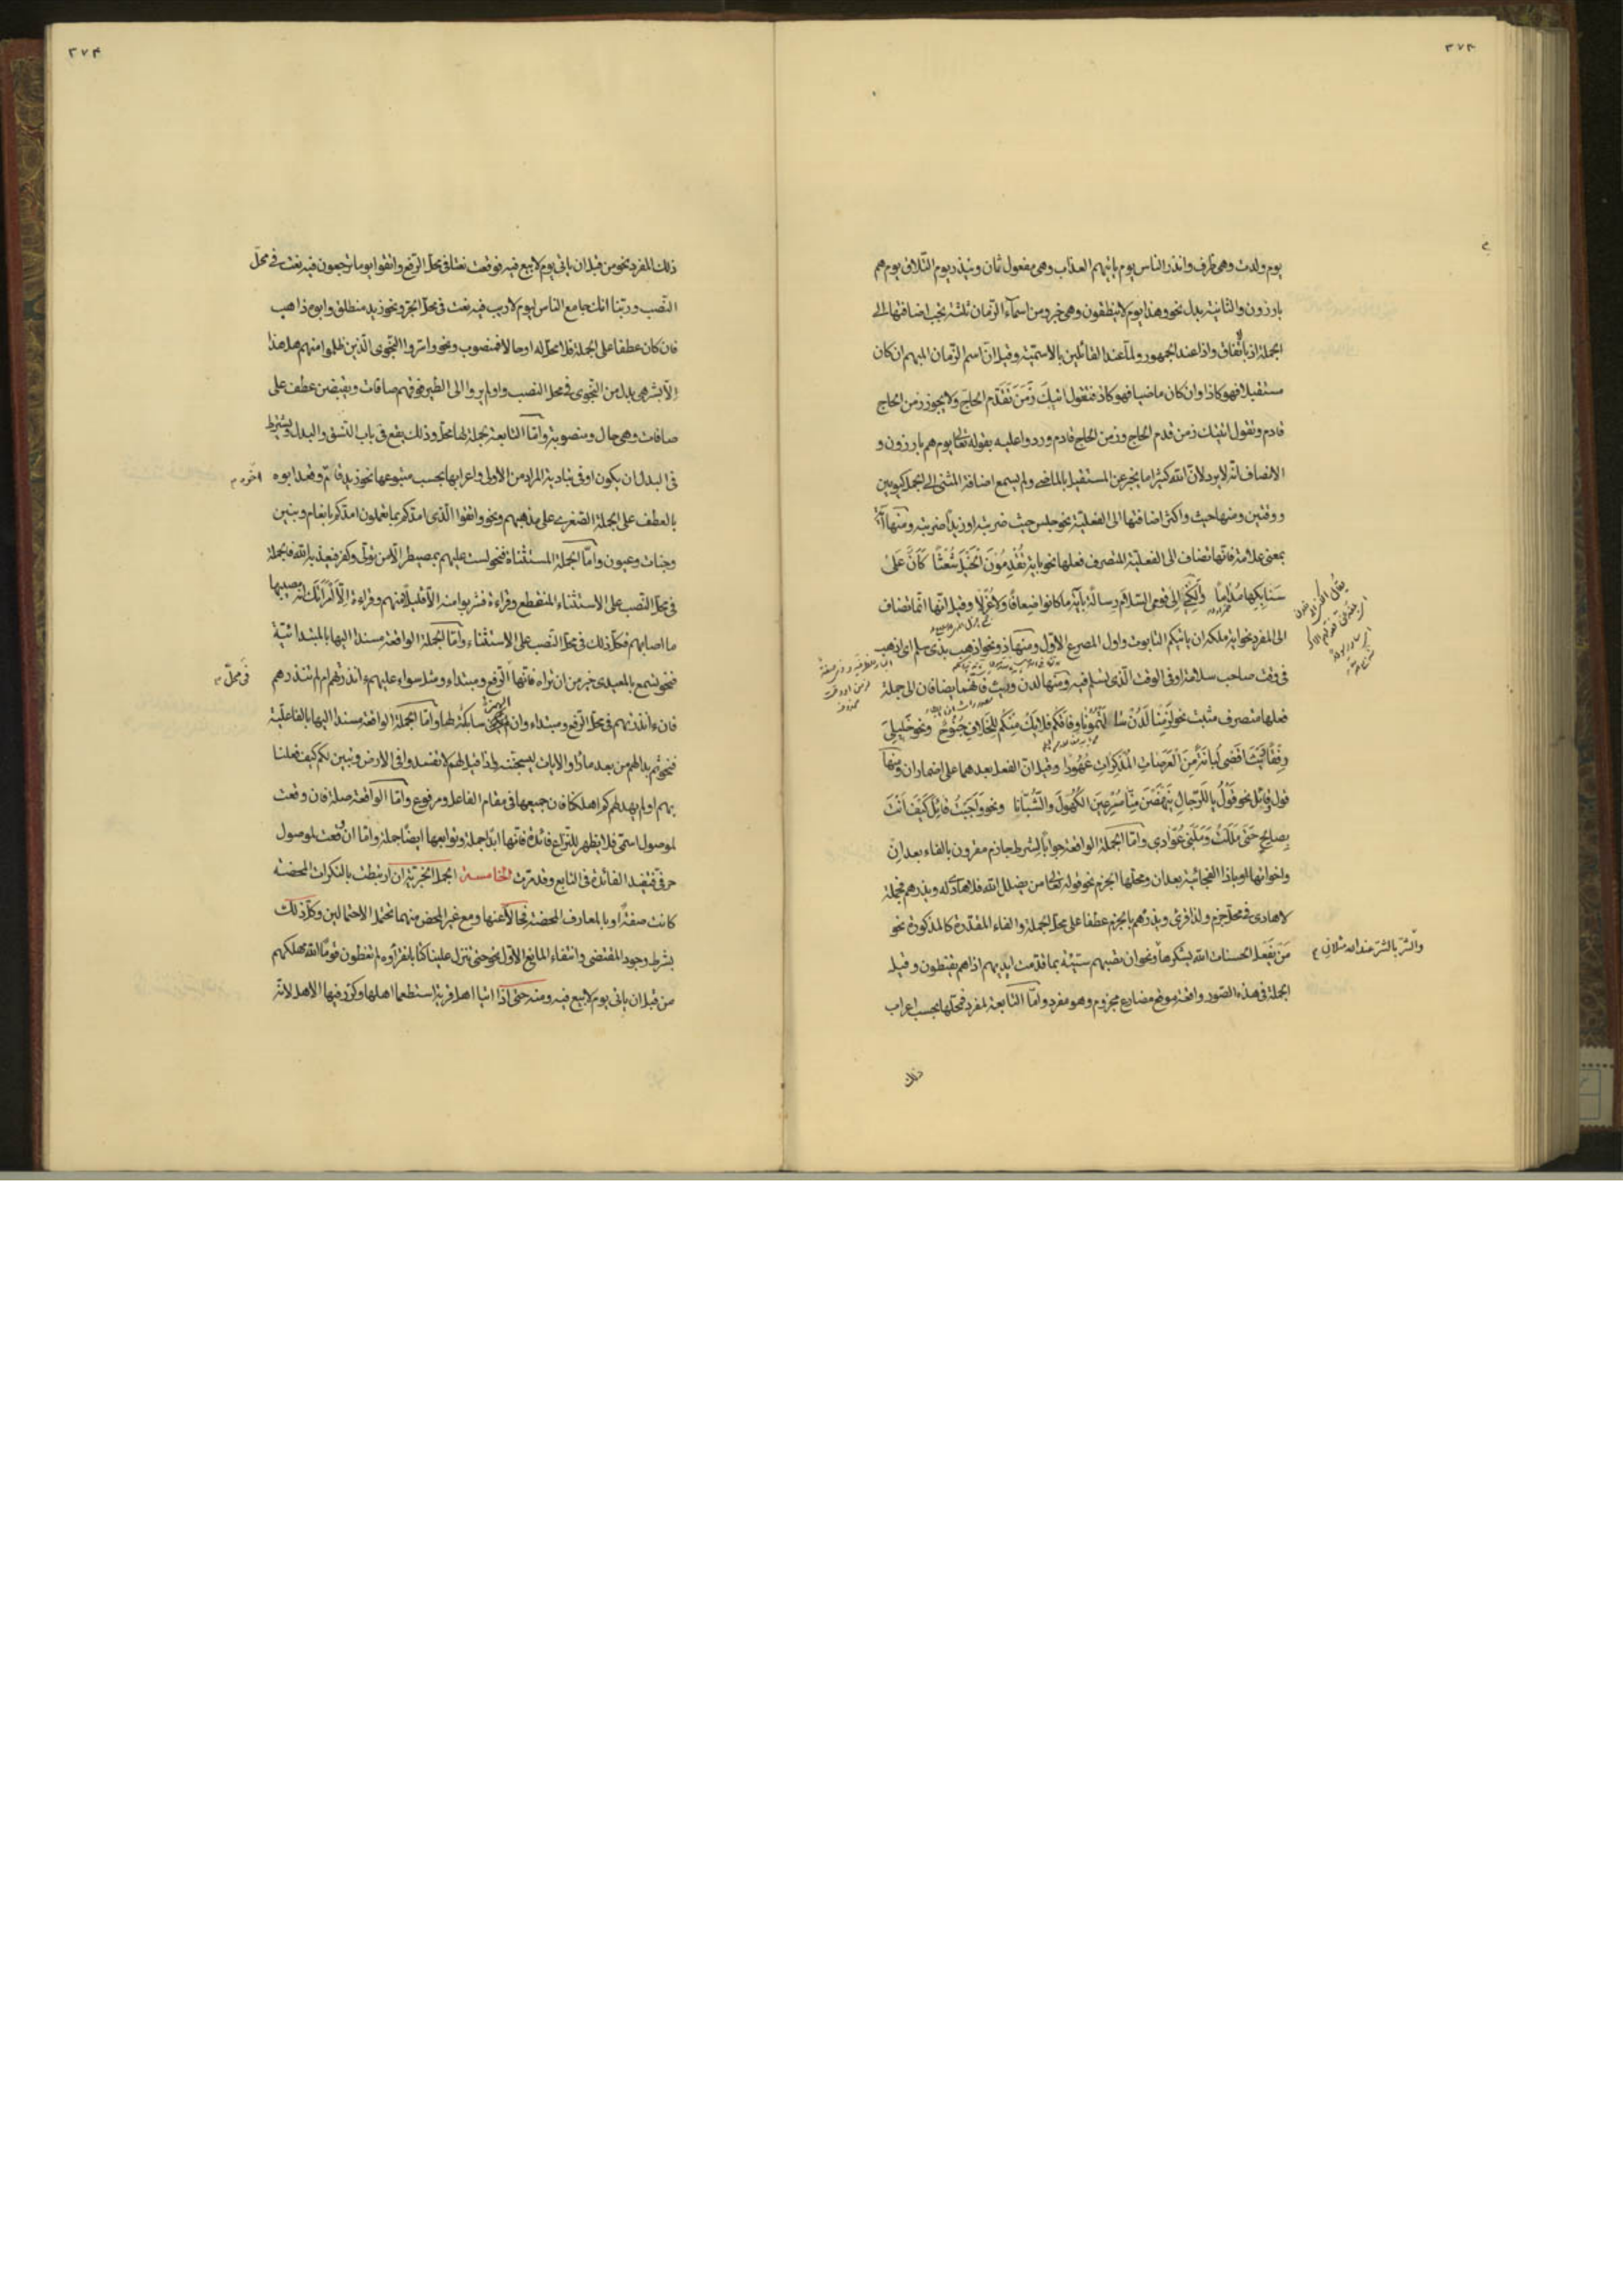 ٣٧٣
يوم ولدت وهى ظرف وانذر الناس يوم ياتيهم العذاب وهى مفعول ثان ولينذر يوم التلاق يوم هم
بارزون والثانية بدل نحو وهذا يوم لا ينطقون وهى خبر ومن اسماء الزمان ثلثة يجب اضافتها الى
الجملة اذ باتفاق واذا عند الجمهور ولما عند القائلين بالاسمية وقيل ان اسم الزمان المبهم ان كان
مستقبلا فهو كاذا وان كان ماضيا فهو كاذ فتقول اتيك زمن تقدم الحاج ولا يجوز زمن الحاج
قادم وتقول اتيتك زمن قدم الحاج وزمن الحاج قادم ورد واعليه بقوله تعالى يوم هم بارزون و
الانصاف انه لا يرد لان الله كثيرا ما يخبر عن المستقبل بالماضى ولم يسمع اضافة المثنى الى الجمل كيومين
ووقتين ومنها حيث واكثر اضافتها الى الفعلية نحو جلس حيث ضربته او زيدا ضربته ومنها آية
بمعنى علامة فانها تضاف الى الفعلية المتصرف فعلها نحو باية تقدمون الخيل شعثا كان على
سنابكها مداما والكنى الى قومى السلام رسالة باية ما كانوا ضعافا ولا عزلا وقيل انها انما تضاف
الى المفرد نحو اية ملكه ان ياتيكم التابوت واول المصرع الاول ومنها ذو نحو اذهب بذى تسلم اى اذهب
فى وقت صاحب سلامة او فى الوقت الذى تسلم فيه ومنها لدن وريث فانهما يضافان الى جملة
فعلها متصرف مثبت نحو لزمنا لدن سالمتمونا وفاقكم فلا يك منكم للخلاف جنوح ونحو خليلى
رفقا ريث اقضى لبانة من العرصات المذكرات عهودا وقيل ان الفعل بعدهما على اضمار ان ومنها
قول وقائل نحو قول يا للرجال ينهض منا مسرعين الكهول والشبانا ونحو واجبت قائل كيف انت
بصالح حتى مللت وملنى عوادى واما الجملة الواقعة جوابا لشرط جازم مقرون بالفاء بعد ان
واخواتها او باذا الفجائية بعد ان ومحلها الجزم نحو قوله تعالى من يضلل الله فلا هادى له ويذرهم فجملة
لا هادى فى محل جزم ولذا قرئ ويذرهم بالجزم عطفا على محل الجملة والفاء المقدرة كالمذكورة نحو
من يفعل الحسنات الله يشكرها ونحو ان تصبهم سيئة بما قدمت ايديهم اذا هم يقنطون وقيل
والشر بالشر عند الله مثلان م
الجملة فى هذه الصور واقعة موقع مضارع مجزوم وهو مفرد واما التابعة لمفرد فمحلها بحسب اعراب
ذلك
٣٧۴
ذلك المفرد نحو من قبل ان ياتى يوم لا بيع فيه فوقعت نعتا فى محل الرفع واتقوا يوما ترجعون فيه نعت فى محل
النصب وربنا انك جامع الناس ليوم لا ريب فيه نعت فى محل الجر ونحو زيد منطلق وابوه ذاهب
فان كان عطفا على الجملة فلا محل له او حالا فمنصوب ونحو واسروا النجوى الذين ظلموا منهم هل هذا
الا بشر هى بدل من النجوى فى محل النصب واولم يروا الى الطير فوقهم صافات ويقبضن عطف على
صافات وهى حال ومنصوبة واما التابعة بجملة لها محل وذلك يقع فى باب النسق والبدل ويشترط
فى البدل ان يكون اوفى بتادية المراد من الاولى واعرابها بحسب متبوعها نحو زيد قام وقعد ابوه
بالعطف على الجملة الصغرى على مذهبهم ونحو واتقوا الذى امدكم بما تعملون امدكم بانعام وبنين
وجنات وعيون واما الجملة المستثناة فنحو لست عليهم بمصيطر الا من تولى وكفر فيعذبه الله فالجملة
فى محل النصب على الاستثناء المنقطع وقراءة فشربوا منه الا قليلا منهم وقراءة الا امراتك انه مصيبها
ما اصابهم فكل ذلك فى محل النصب على الاستثناء واما الجملة الواقعة مسندا اليها بالمبتدائية
فنحو تسمع بالمعيدى خير من ان تراه فانها الرفع ومبتداء ومثل سواء عليهم ءانذرتهم ام لم تنذرهم
فى محل م
فان ءانذرتهم فى محل الرفع ومبتداء وان الهمزة سابكة لها واما الجملة الواقعة مسندا اليها بالفاعلية
فنحو ثم بدا لهم من بعد ما راوا الايات ليسجننه واذا قيل لهم لا تفسدوا فى الارض وتبين لكم كيف فعلنا
بهم اولم يهد لهم كم اهلكنا فان جميعها فى مقام الفاعل ومرفوع واما الواقعة صلة فان وقعت
لموصول اسمى فلا يظهر للنزاع فائدة فانها ابدا جملة وتوابعها ايضا جملة واما ان وقعت لموصول
حرفى فتفيد الفائدة فى التابع وقد مرت الخامسة الجمل الخبرية ان ارتبطت بالنكرات المحضة
كانت صفة او بالمعارف المحضة فحالا عنها ومع غير المحض منهما تحتمل الاحتمالين وكل ذلك
بشرط وجود المقتضى وانتفاء المانع الاول نحو حتى تنزل علينا كتابا نقرؤه لم تعظون قوما الله مهلكهم
من قبل ان ياتى يوم لا بيع فيه ومنه حتى اذا اتيا اهل قرية استطعما اهلها وكرر فيها الاهل لانه